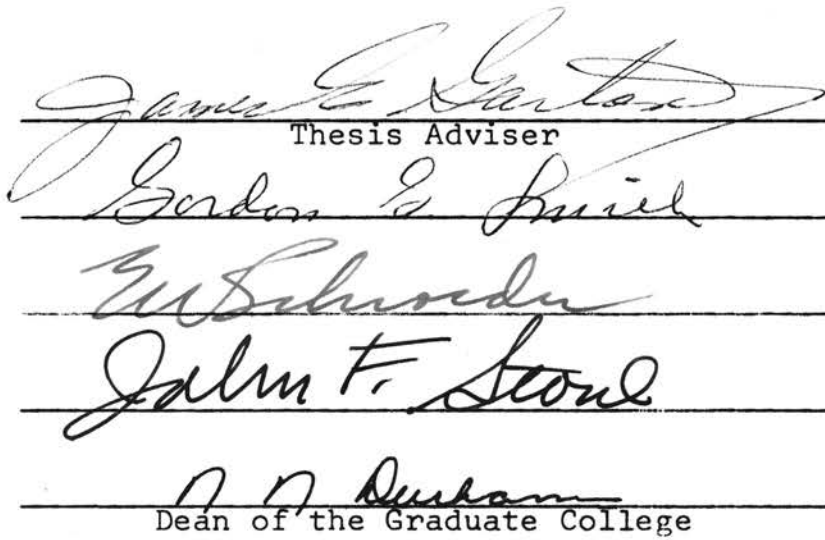 James E Garton
Thesis Adviser
Gordon G Smith
EW Schroeder
John F. Stone
n n Durham
Dean of the Graduate College